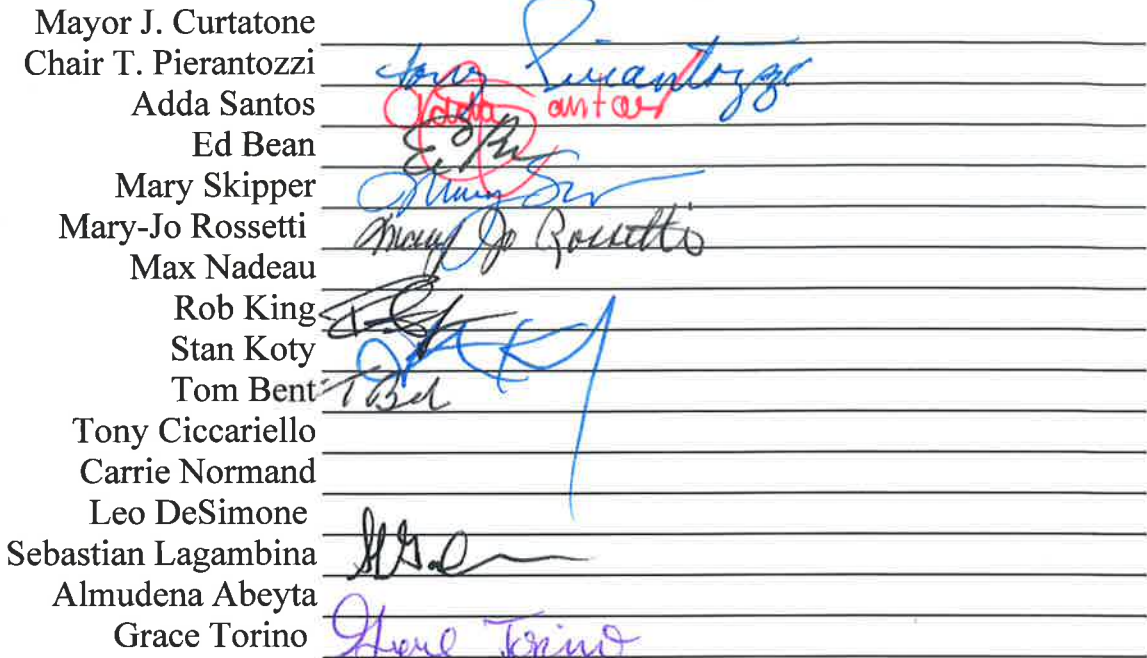 Mayor J. Curtatone
Chair T. Pierantozzi Tony Pierantozzi
Adda Santos Adda Santos
Ed Bean
Mary Skipper Mary
Mary-Jo Rossetti Mary Jo Rossetti
Max Nadeau
Rob King
Stan Koty
Tom Bent T Bent
Tony Ciccariello
Carrie Normand
Leo DeSimone
Sebastian Lagambina
Almudena Abeyta
Grace Torino Grace Torino